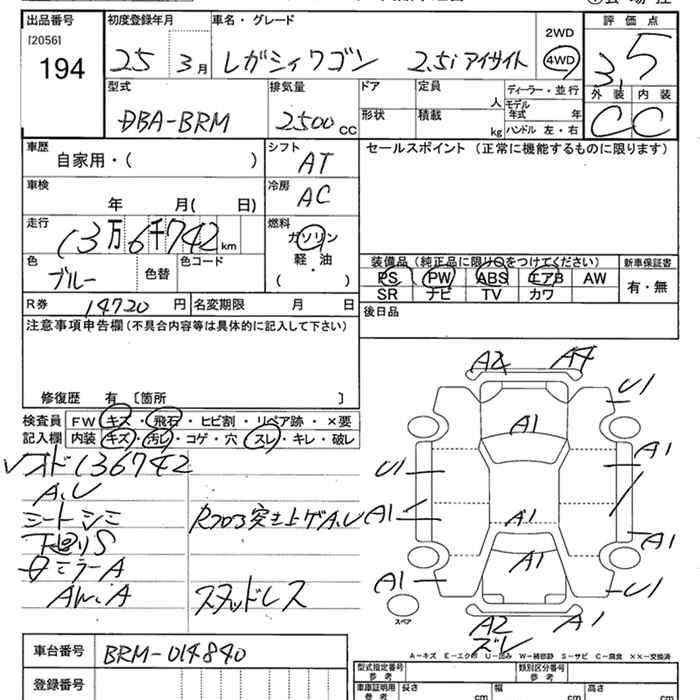 出品番号 初度登録年月 車名・グレード 2WD 評価点
[2056]
194 25 3月 レガシィワゴン 2.5i アイサイト 4WD 3.5
型式 排気量 ドア 定員 人 ディーラー・並行 外装 内装
DBA-BRM 2500 CC 形状 積載 kg モデル年式 年 C C
ハンドル 左・右
車歴 シフト セールスポイント (正常に機能するものに限ります)
自家用・( ) AT
車検 冷房
年 月( 日) AC
走行 燃料
13万6千742 km ガソリン
軽・油
( )
色 色替 色コード 装備品(純正品に限り○をつけてください) 新車保証書
ブルー PS PW ABS エアB AW 有・無
SR ナビ TV カワ
R券 14720 円 名変期限 月 日 後日品
注意事項申告欄(不具合内容等は具体的に記入して下さい)
修復歴 有 〔箇所 〕
検査員 FW キズ・飛石・ヒビ割・リペア跡・×要
記入欄 内装 キズ・汚レ・コゲ・穴・スレ・キレ・破レ
オド136742
A.U
シートシミ Rフロア突き上ゲA.U
下廻りS
ミラーA
AW.A スタッドレス
A2 A4
U1
A1
U1 A1
A1 A1 A1
A1
A1 U1
スペア
A2 A1
ズレ
A-キズ E-エクボ U-凹み W-補修跡 S-サビ C-腐食 ××-交換済
車台番号 BRM-014840
登録番号
型式指定番号 参考 類別区分番号 参考
車庫証明用 参考 長さ cm 幅 cm 高さ cm